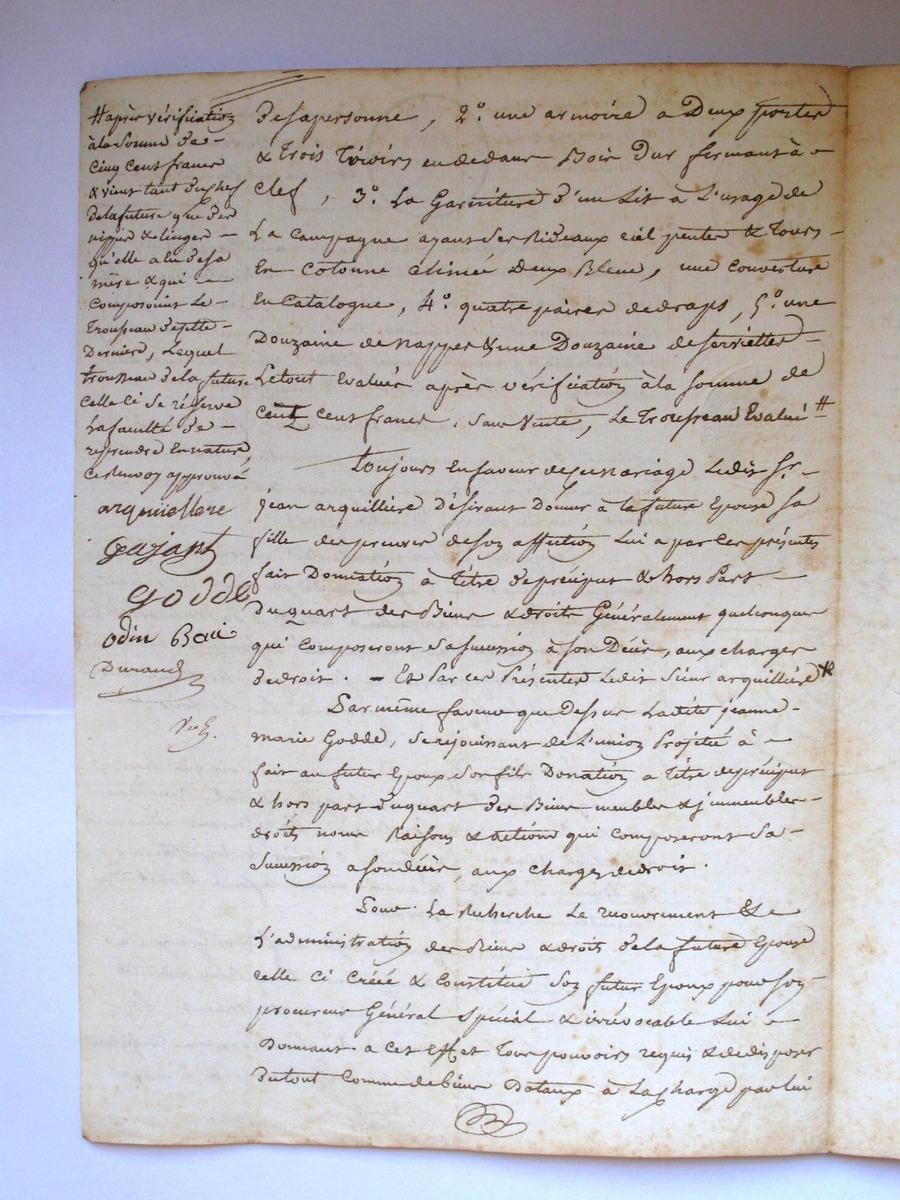 # après vérification
à la somme de
cinq cent francs
& vient tant du chef
de la future que des
nippes & linges
qu'elle a eu de sa
mère & qui
composoint le
trousseau de cette
dernière, lequel
trousseau de la future
celle ci se réserve
la faculté de
reprendre en nature
ce renvoy approuvé
arquilliere
Gajant
Godde
odin
Durand
de sa personne, 2.º une armoire a deux portes
& trois tiroirs en dedans Bois dur fermant à
clef, 3.º La Garniture d'un Lit à L'usage de
La campagne ayant des Rideaux ciel pentes & tours
En cotonne bleue, une couverture
En catalogne, 4.º quatre paires de draps, 5.º une
Douzaine de nappes & une Douzaine de serviettes
Le tout Evalué après vérification à la somme de
cent francs. sans vente, Le trousseau Evalué #
Toujours En faveur de ce mariage Ledit Sr.
jean arquilliere désirant donner à la future Epouse sa
fille des preuves de son affection Lui a par ces présentes
fait Donnation à titre de préciput & hors Part
Du quart des Biens & droits Généralement quelconques
qui composeront sa succession à son Décès, aux charges
de droit. - Et Par ces Présentes Ledit Sieur arquilliere *
Par même faveur que Dessus Ladite jeanne
marie Godde, se réjouissant de L'union Projetée à
fait au futur Epoux son fils Donation à titre de préciput
& hors part du quart des Biens meubles & immeubles
droits noms Raisons & actions qui composeront sa
succession a son décès, aux charges de droit.
Pour La Recherche Le recouvrement & Le
L'administration des Biens & droits de la future Epouse
celle ci créé & constitue son futur Epoux pour son
procureur Général spécial & irrévocable Lui
Donnant à cet Effet tous pouvoirs requis & de disposer
du tout comme de biens Dotaux à La charge par lui